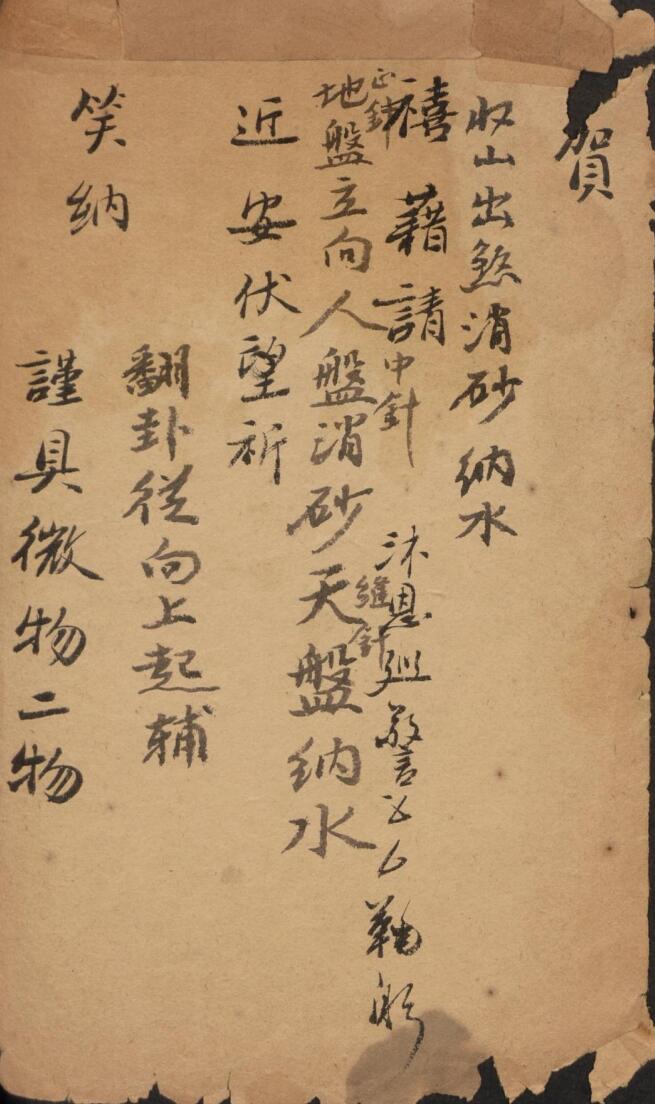 賀
收山出煞消砂納水
禧藉請
中針
沐恩
鞠躬
正針
地盤立向人盤消砂天盤納水
縫針
近安伏望祈
翻卦從向上起輔
笑納
謹具微物二物